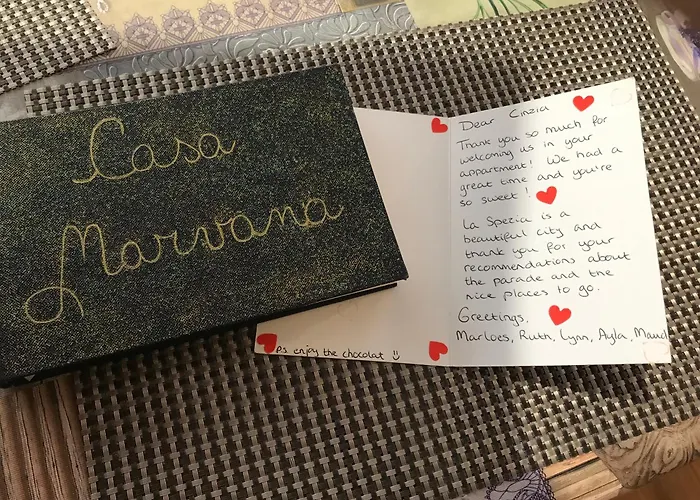 Casa
Marvana
Dear Cinzia
Thank you so much for
welcoming us in your
appartment! We had a
great time and you're
so sweet!
La Spezia is a
beautiful city and
thank you for your
recommendations about
the parade and the
nice places to go.
Greetings,
Marloes, Ruth, Lynn, Ayla, Maud
Ps enjoy the chocolat :)